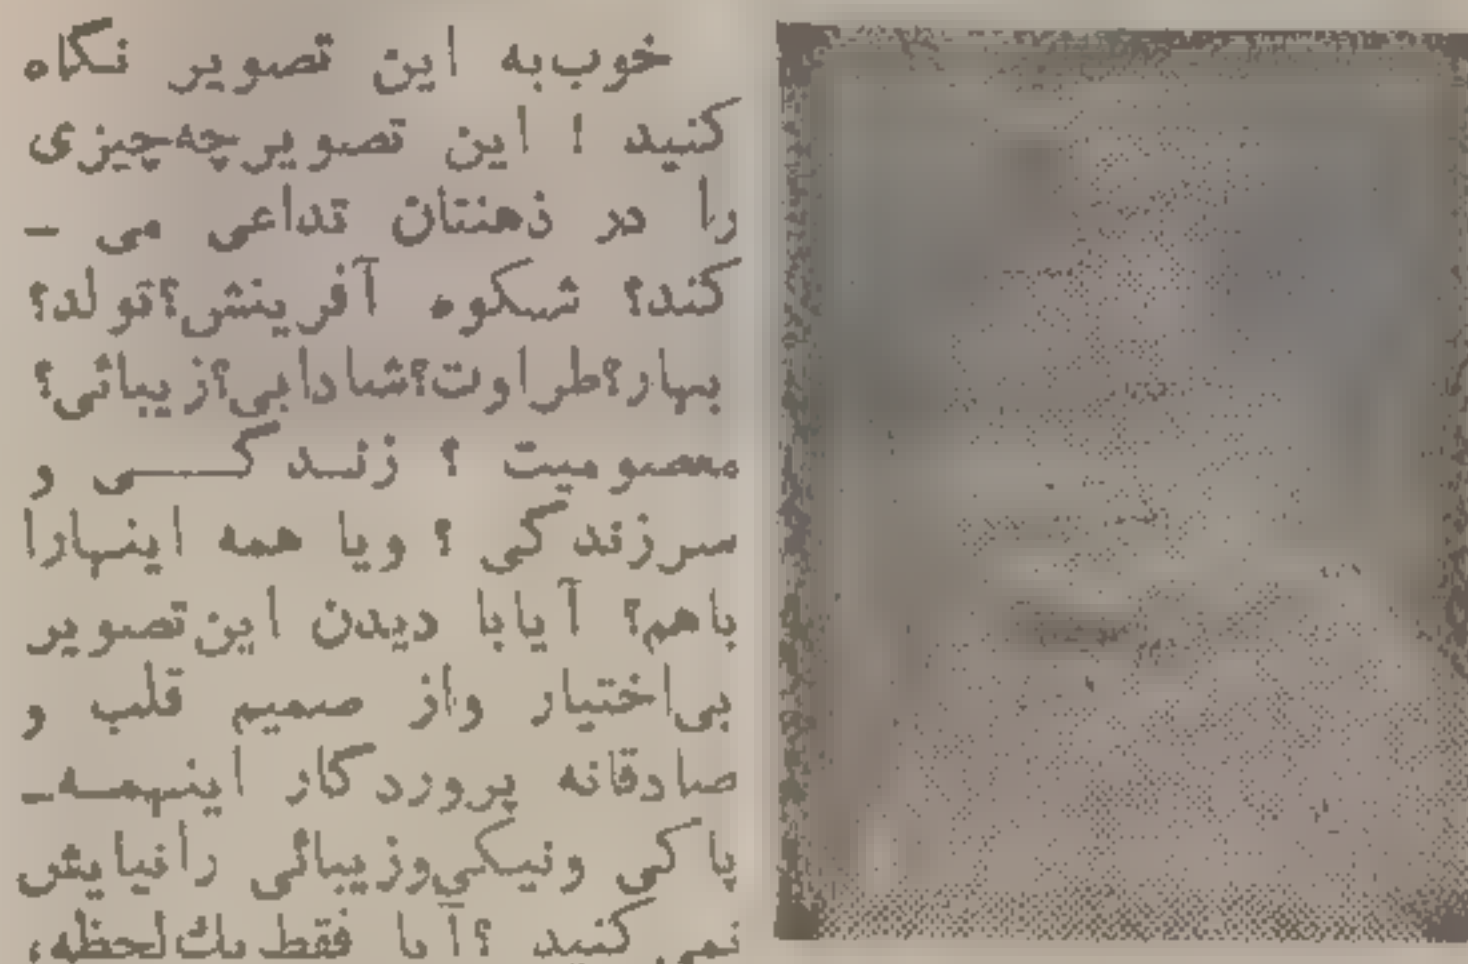 خوب‌به این تصویر نگاه
کنید ! این تصویرچه‌چیزی
را در ذهنتان تداعی می ـ
کند؟ شکوه آفرینش؟تولد؟
بهار؟طراوت؟شادابی؟زیبائی؟
معصومیت ؟ زندگـــی و
سرزندگی ؟ ویا همه اینهارا
باهم؟ آیابا دیدن این‌تصویر
بی‌اختیار واز صمیم قلب و
صادقانه پروردگار اینهمه‌ـ
پاکی ونیکی‌وزیبائی رانیایش
نمی کنید ؟آیا فقط یك‌لحظه،